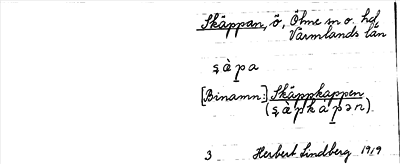 Skäppan, ö, Ölme sn o. hd,
Värmlands län
ṣ à p a
[Binamn:] Skäppkappen
(ṣ à p k a p ə n)
3 Herbert Lindberg 1919